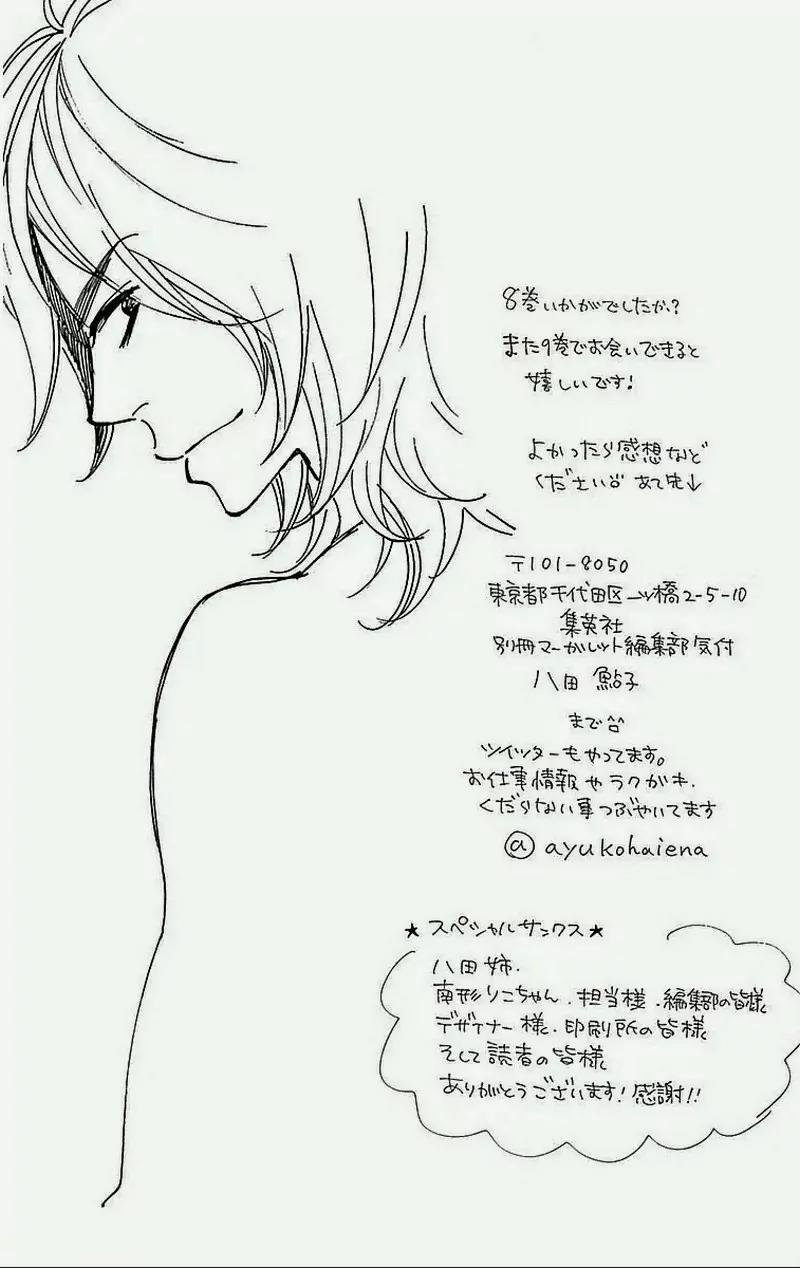 8巻いかがでしたか?
また9巻でお会いできると
嬉しいです!
よかったら感想など
ください^^ あて先↓
〒101-8050
東京都千代田区一ツ橋2-5-10
集英社
別冊マーガレット編集部気付
八田 鮎子
まで^^
ツイッターもやってます。
お仕事情報やラクガキ.
くだらない事つぶやいてます
@ayukohaiena
★スペシャルサンクス★
八田姉.
南形りこちゃん.担当様.編集部の皆様
デザイナー様.印刷所の皆様
そして読者の皆様
ありがとうございます!感謝!!